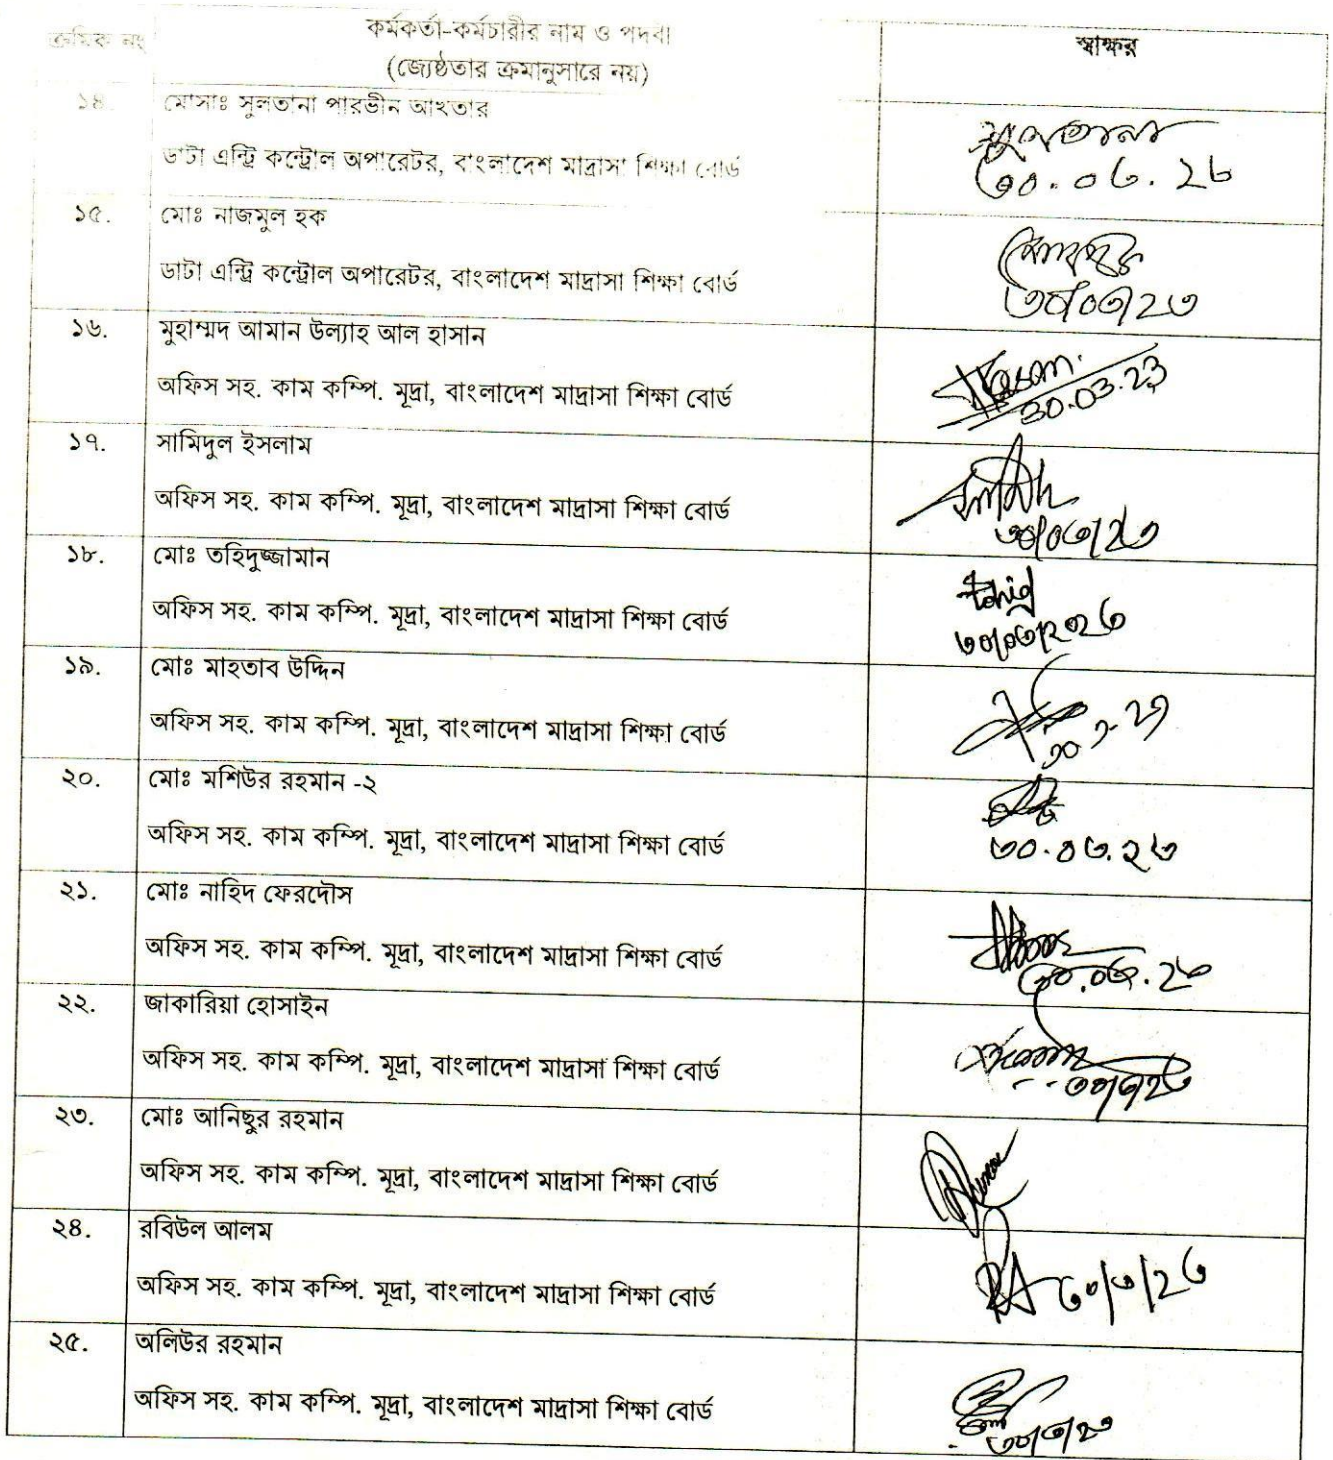 ক্রমিক নং
কর্মকর্তা-কর্মচারীর নাম ও পদবী
(জ্যেষ্ঠতার ক্রমানুসারে নয়)
স্বাক্ষর
১৪.
মোসাঃ সুলতানা পারভীন আখতার
ডাটা এন্ট্রি কন্ট্রোল অপারেটর, বাংলাদেশ মাদ্রাসা শিক্ষা বোর্ড
সুলতানা
৩০.০৩.২৩
১৫.
মোঃ নাজমুল হক
ডাটা এন্ট্রি কন্ট্রোল অপারেটর, বাংলাদেশ মাদ্রাসা শিক্ষা বোর্ড
৩০/০৩/২৩
১৬.
মুহাম্মদ আমান উল্যাহ আল হাসান
অফিস সহ. কাম কম্পি. মূদ্রা, বাংলাদেশ মাদ্রাসা শিক্ষা বোর্ড
Hasan
30.03.23
১৭.
সামিদুল ইসলাম
অফিস সহ. কাম কম্পি. মূদ্রা, বাংলাদেশ মাদ্রাসা শিক্ষা বোর্ড
৩০/০৩/২৩
১৮.
মোঃ তহিদুজ্জামান
অফিস সহ. কাম কম্পি. মূদ্রা, বাংলাদেশ মাদ্রাসা শিক্ষা বোর্ড
tohid
৩০/০৩/২০২৩
১৯.
মোঃ মাহতাব উদ্দিন
অফিস সহ. কাম কম্পি. মূদ্রা, বাংলাদেশ মাদ্রাসা শিক্ষা বোর্ড
২০.
মোঃ মশিউর রহমান -২
অফিস সহ. কাম কম্পি. মূদ্রা, বাংলাদেশ মাদ্রাসা শিক্ষা বোর্ড
৩০.০৩.২৩
২১.
মোঃ নাহিদ ফেরদৌস
অফিস সহ. কাম কম্পি. মূদ্রা, বাংলাদেশ মাদ্রাসা শিক্ষা বোর্ড
৩০.০৩.২৩
২২.
জাকারিয়া হোসাইন
অফিস সহ. কাম কম্পি. মূদ্রা, বাংলাদেশ মাদ্রাসা শিক্ষা বোর্ড
৩০/৩/২৩
২৩.
মোঃ আনিছুর রহমান
অফিস সহ. কাম কম্পি. মূদ্রা, বাংলাদেশ মাদ্রাসা শিক্ষা বোর্ড
২৪.
রবিউল আলম
অফিস সহ. কাম কম্পি. মূদ্রা, বাংলাদেশ মাদ্রাসা শিক্ষা বোর্ড
RA ৩০/৩/২৩
২৫.
অলিউর রহমান
অফিস সহ. কাম কম্পি. মূদ্রা, বাংলাদেশ মাদ্রাসা শিক্ষা বোর্ড
৩০/৩/২৩